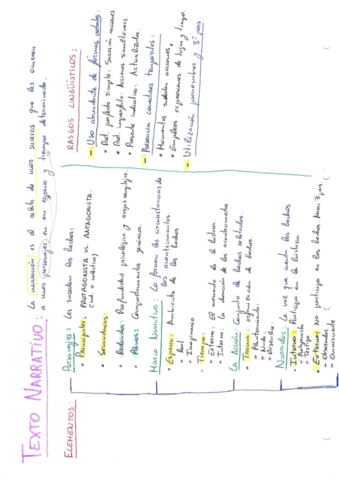 TEXTO NARRATIVO:
La narración es el relato de unos sucesos que les ocurren
a unos personajes en un espacio y tiempo determinado.
ELEMENTOS
Personajes: Les suceden los hechos:
• Principales: PROTAGONISTA vs. ANTAGONISTA
• Secundarios
• Redondos: Profundidad psicológica y
• Planos: Comportamientos
Marco Narrativo: Lo forman las circunstancias de
los hechos
• Espacio: Ambiente de los hechos
• Real
• Imaginario
• Tiempo:
• Externo: El momento de la historia
• Interno: La duración de los acontecimientos
La Acción: Conjunto de hechos relatados.
• Trama: organización de hechos
- Planteamiento
- Nudo
- Desenlace
Narrador: La voz que cuenta los hechos
• Interno: Participa en la historia
- Protagonista
- Testigo
• Externo: No participa en los hechos
- Observador
- Omnisciente
RASGOS LINGÜÍSTICOS:
- Uso abundante de formas verbales:
• Pret. perfecto simple: Sucesión acciones
• Pret. imperfecto: Acciones
• Presente indicativo: Actualizador
- Presencia conectores temporales:
• Momentos suceden acciones.
• Emplean expresiones de lugar y tiempo.
- Utilización pronombres y 3ª pers